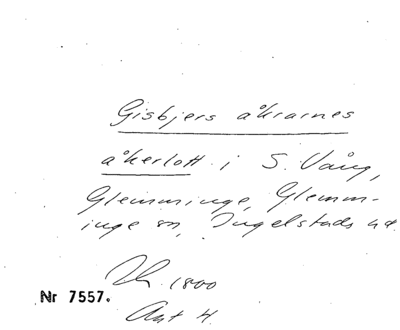 Gisbjers åkrarnes
åkerlott i S. Vång,
Glemminge, Glemm-
inge sn, Ingelstads hd.
1800
Nr 7557.
Akt 4.